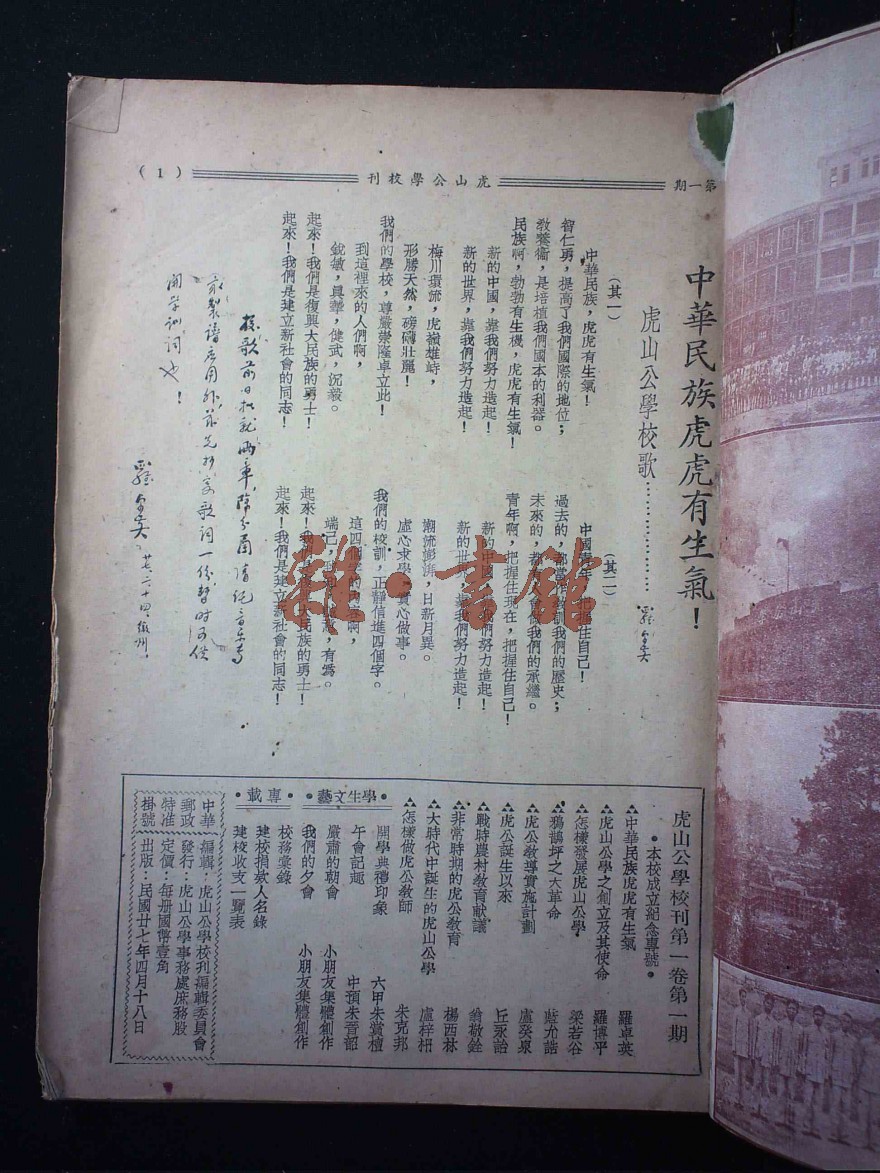 第一期
虎山公學校刊
(1)
中華民族虎虎有生氣！
虎山公學校歌………………羅卓英
(其一)
中華民族，虎虎有生氣！
智仁勇，提高了我們國際的地位；
教養衞，是培植我們國本的利器。
民族啊，勃勃有生機，虎虎有生氣！
新的中國，靠我們努力造起！
新的世界，靠我們努力造起！
梅川環流，虎嶺雄峙，
形勝天然，磅礴壯麗！
我們的學校，尊嚴崇隆卓立此！
到這裡來的人們啊，
銳敏，眞摯，健武，沉毅。
起來！我們是復興大民族的勇士！
起來！我們是建立新社會的同志！
(其二)
中國青年，把握住自己！
過去的，都當作教訓我們的歷史；
未來的，都有人會做我們的承繼。
青年啊，把握住現在，把握住自己！
新的中國，靠我們努力造起！
新的世界，靠我們努力造起！
潮流澎湃，日新月異。
虛心求學，實心做事。
我們的校訓，正靜信進四個字。
這四個字的內容啊，
端己，有爲。
起來！大民族的勇士！
起來！我們是建立新社會的同志！
校歌前日
開學訓詞也！
羅卓英 廿七、二、十四、徽州。
雜·書館
虎山公學校刊第一卷第一期
•本校成立紀念專號•
中華民族虎虎有生氣 羅卓英
虎山公學之創立及其使命 羅博平
怎樣發展虎山公學 梁若谷
鵝鵠坪之大革命 藍允誥
虎公教導實施計劃 盧癸泉
虎公誕生以來 丘永詒
戰時農村教育献議 翁敬銓
非常時期的虎公教育 楊西林
大時代中誕生的虎山公學 盧梓柵
怎樣做虎公教師 朱克邦
•學生文藝•
開學典禮印象 六甲朱賞檀
午會記趣 中預朱晉韶
嚴肅的朝會 小朋友集體創作
我們的夕會 小朋友集體創作
•專載•
校務彙錄
建校捐欵人名錄
建校收支一覽表
中華郵政特准掛號
編輯：虎山公學校刊編輯委員會
發行：虎山公學事務處庶務股
定價：每册國幣壹角
出版：民國廿七年四月十八日